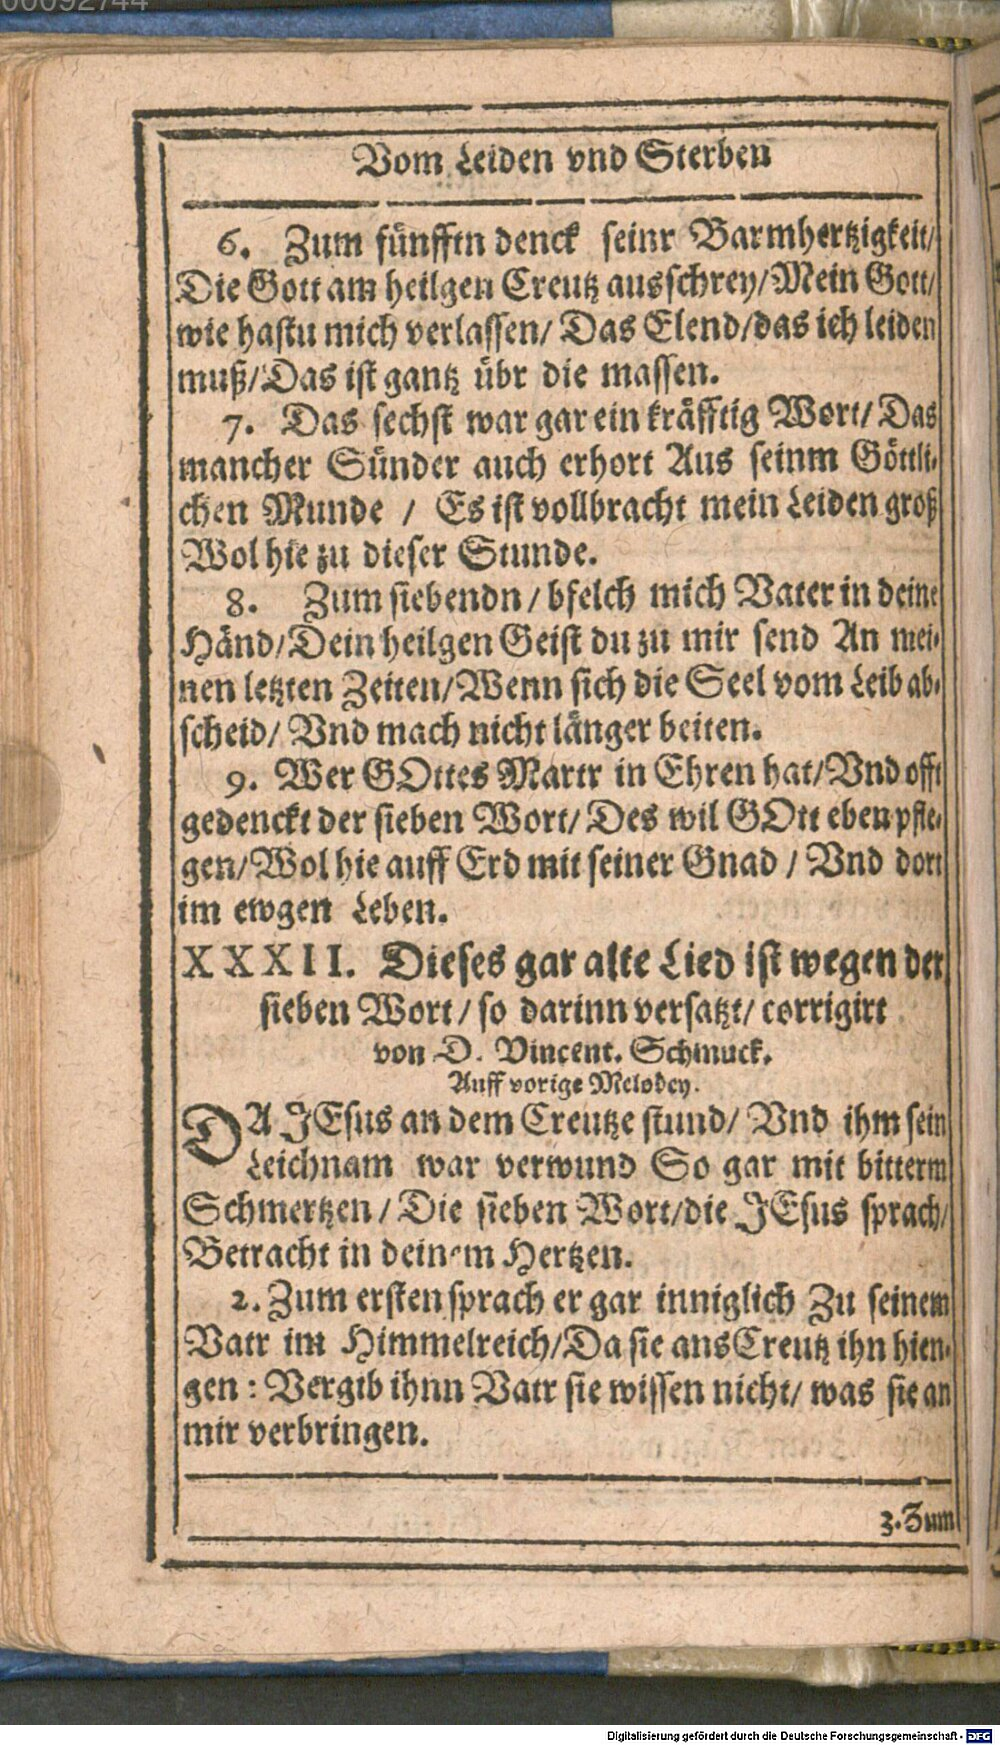 00092744
Vom Leiden vnd Sterben
6. Zum fünfftn denck seinr Barmhertzigkeit/
Die Gott am heilgen Creutz ausschrey/Mein Gott/
wie hastu mich verlassen/ Das Elend/das ich leiden
muß/Das ist gantz übr die massen.
7. Das sechst war gar ein kräfftig Wort/ Das
mancher Sünder auch erhort Aus seinm Göttli-
chen Munde / Es ist vollbracht mein Leiden groß
Wol hie zu dieser Stunde.
8. Zum siebendn / bfelch mich Vater in deine
Händ/Dein heilgen Geist du zu mir send An mei-
nen letzten Zeiten/Wenn sich die Seel vom Leib ab-
scheid/ Vnd mach nicht länger beiten.
9. Wer GOttes Martr in Ehren hat/Vnd offt
gedenckt der sieben Wort/ Des wil GOtt eben pfle-
gen/Wol hie auff Erd mit seiner Gnad / Vnd dort
im ewgen Leben.
XXXII. Dieses gar alte Lied ist wegen der
sieben Wort/ so darinn versatzt/ corrigirt
von D. Vincent. Schmuck.
Auff vorige Melodey.
DA JEsus an dem Creutze stund/ Vnd ihm sein
Leichnam war verwund So gar mit bitterm
Schmertzen / Die sieben Wort/die JEsus sprach/
Betracht in deinem Hertzen.
2. Zum ersten sprach er gar inniglich Zu seinem
Vatr im Himmelreich/Da sie ans Creutz ihn hien-
gen : Vergib ihnn Vatr sie wissen nicht/ was sie an
mir verbringen.
3. Zum
Digitalisierung gefördert durch die Deutsche Forschungsgemeinschaft - DFG